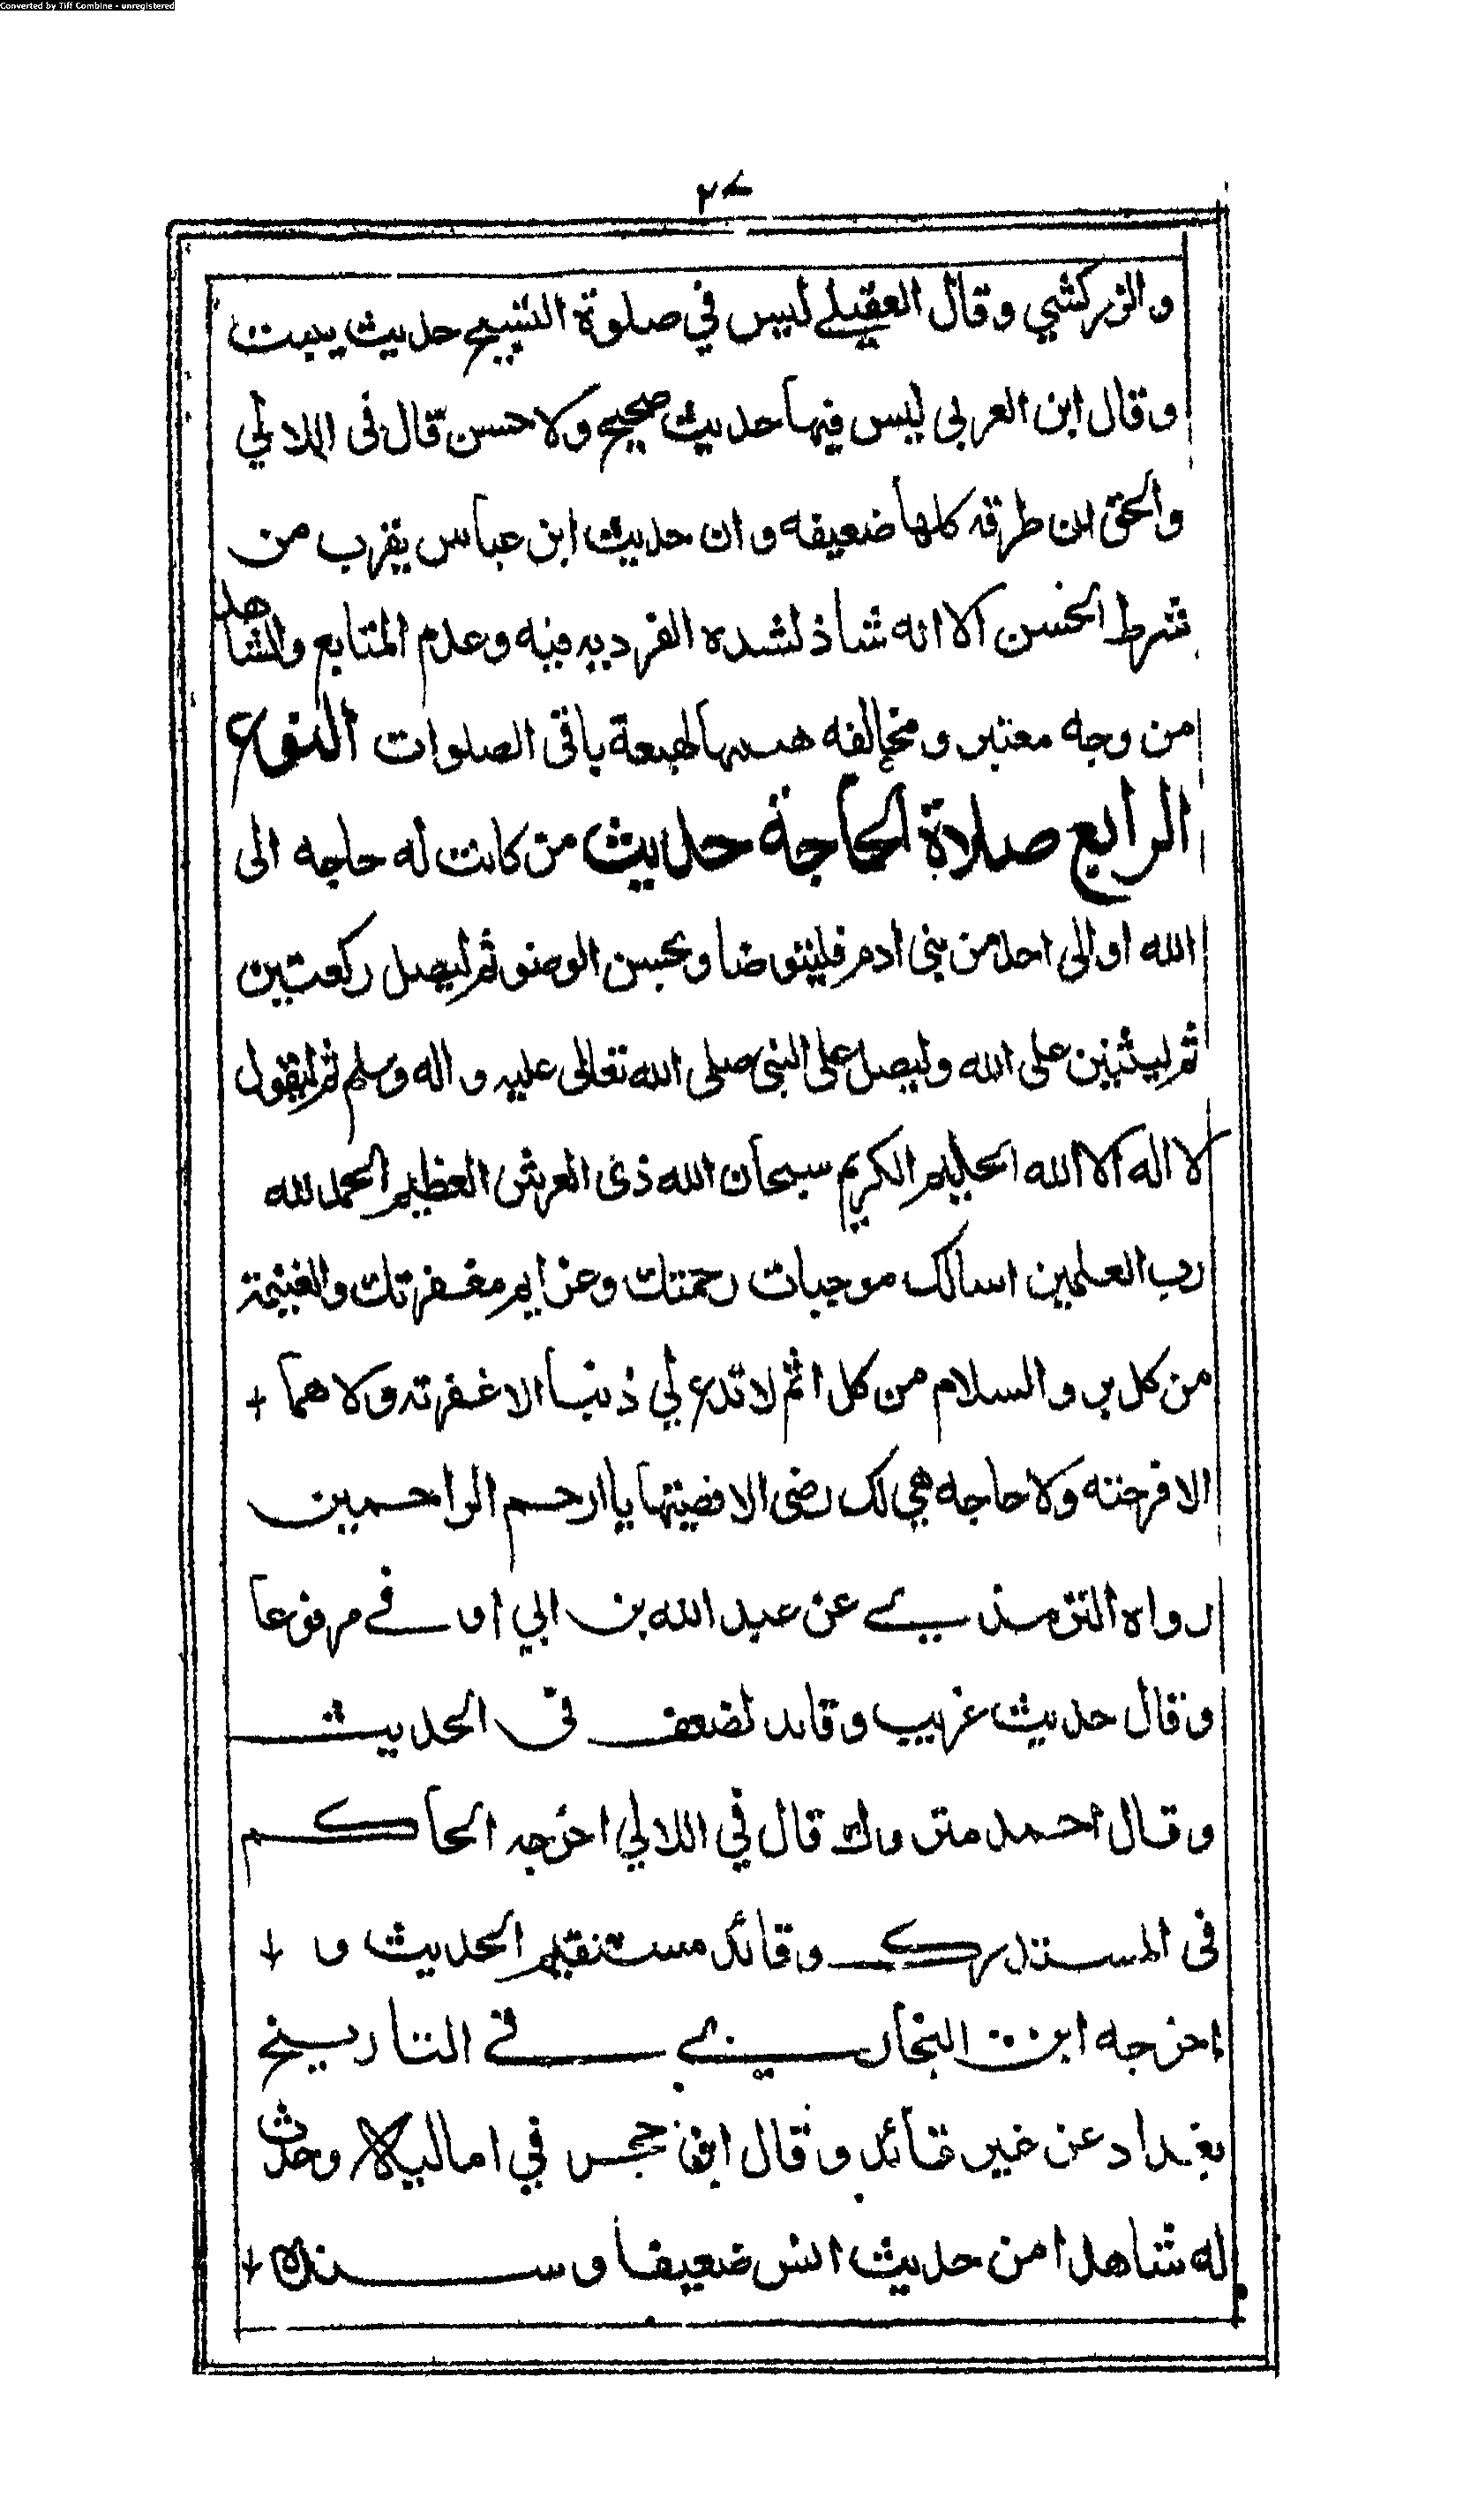 Converted by Tiff Combine - unregistered
٢٧
والزركشي وقال العقيلے ليس في صلوة التسبيح حديث يثبت
وقال ابن العربى ليس فيها حديث صحيح ولا حسن قال فى اللالي
والحق ان طرقه كلها ضعيفه وان حديث ابن عباس يقرب من
شرط الحسن الا انه شاذ لشده الفرديه فيه وعدم المتابع والشاهد
من وجه معتبر ومخالفه هيئتها لهيعة باقى الصلوات النوع
الرابع صلاة الحاجة حديث من كانت له حاجه الى
الله او الى احد من بنى ادم فليتوضا ويحسن الوضو ثم ليصل ركعتين
ثم ليثنين على الله وليصل على النبى صلى الله تعالى عليه واله وسلم ثم ليقول
لا اله الا الله الحليم الكريم سبحان الله ذى العرش العظيم الحمد لله
رب العلمين اسالك موجبات رحمتك وعزايم مغفرتك والغنيمة
من كل بر والسلام من كل اثم لا تدع لي ذنبا الا غفرته ولا هما
الا فرجته ولا حاجه هي لك رضى الا قضيتها يا ارحم الراحمين
رواه الترمذي عن عبد الله بن ابي اوفے مرفوعا
وقال حديث غريب وقايد لضعف فى الحديث
وقال احمد متروك قال في اللالي اخرجه الحاكم
فى المستدرك وقائد مستقيم الحديث و
اخرجه ابن النجار ي فے التاريخ
بغداد عن غير قائد وقال ابن حجر في اماليه وحدث
له شاهدا من حديث انس ضعيفا وسنده